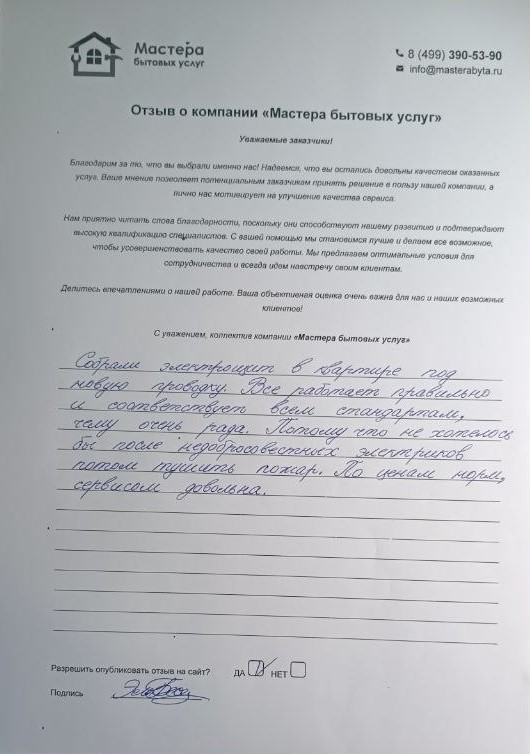 Мастера
бытовых услуг
8 (499) 390-53-90
info@masterabyta.ru
Отзыв о компании «Мастера бытовых услуг»
Уважаемые заказчики!
Благодарим за то, что вы выбрали именно нас! Надеемся, что вы остались довольны качеством оказанных
услуг. Ваше мнение позволяет потенциальным заказчикам принять решение в пользу нашей компании, а
лично нас мотивирует на улучшение качества сервиса.
Нам приятно читать слова благодарности, поскольку они способствуют нашему развитию и подтверждают
высокую квалификацию специалистов. С вашей помощью мы становимся лучше и делаем все возможное,
чтобы усовершенствовать качество своей работы. Мы предлагаем оптимальные условия для
сотрудничества и всегда идем навстречу своим клиентам.
Делитесь впечатлениями о нашей работе. Ваша объективная оценка очень важна для нас и наших возможных
клиентов!
С уважением, коллектив компании «Мастера бытовых услуг»
Собрали электрощит в квартире под
новую проводку. Все работает правильно
и соответствует всем стандартам,
чему очень рада. Потому что не хотелось
бы после недобросовестных электриков
потом тушить пожар. По ценам норм,
сервисом довольна.
Разрешить опубликовать отзыв на сайт? ДА НЕТ
Подпись